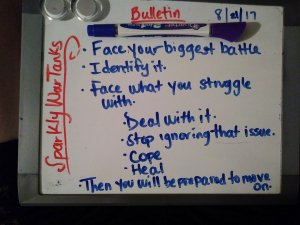 Bulletin
8/21/17
Sparkly War Tanks
• Face your biggest battle
• Identify it.
• Face what you struggle
with.
• Deal with it.
• Stop ignoring that issue.
• Cope
• Heal
• Then you will be prepared to move
on.